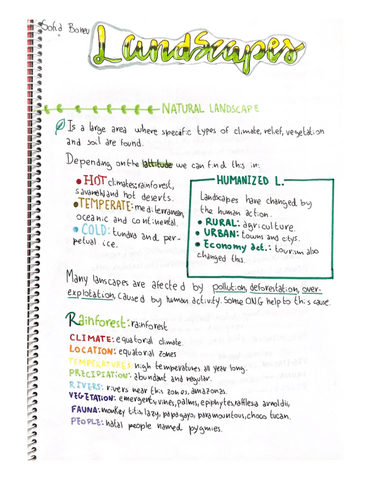 Sofia
Landscapes
NATURAL LANDSCAPE
Is a large area where specific types of climate, relief, vegetation
and soil are found.
Depending on the lattitude we can find this in:
• HOT climates: rainforest,
savannah and hot deserts.
• TEMPERATE: mediterranean,
oceanic and continental.
• COLD: tundra and per-
petual ice.
HUMANIZED L.
Landscapes have changed by
the human action.
• RURAL: agriculture.
• URBAN: towns and citys.
• Economy act.: tourism also
changed this.
Many lanscapes are afected by pollution, deforestation, over-
explotation, caused by human activity. Some ONG help to this cause.
Rainforest: rainforest
CLIMATE: equatorial climate.
LOCATION: equatorial zones
TEMPERATURES: high temperatures all year long.
PRECIPITATION: abundant and regular.
RIVERS: rivers near this zones, amazonas.
VEGETATION: emergents, vines, palms, epiphytes, rafflesia arnoldii,
FAUNA: monkey titi, lazy, papagayo, choco tucan.
PEOPLE: people named pygmies.